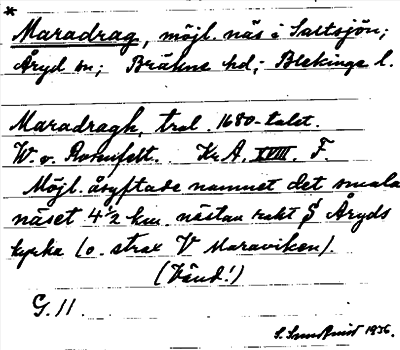 *
Maradrag, möjl. näs i Saltsjön;
Åryd sn; Bräkne hd; Blekinge l.
Maradragh, trol. 1680-talet.
W. v. Rosenfelt. Kr A. XVIII. F.
Möjl. åsyftade namnet det smala
näset 4½ km. nästan rakt S Åryds
kyrka (o. strax V Maraviken).
(Vänd!)
G. 11.
S. Sundquist 1936.